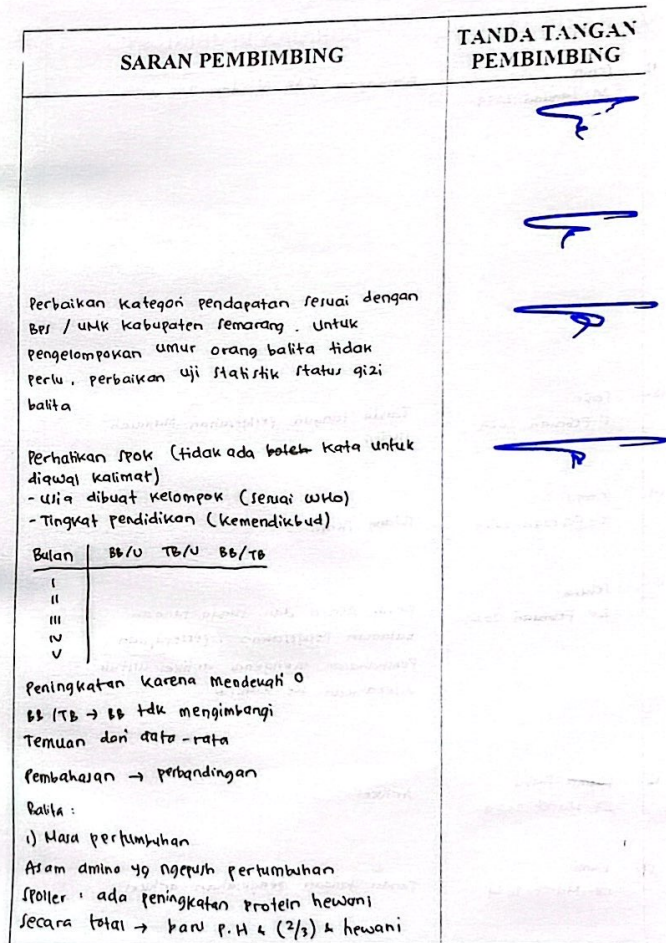 SARAN PEMBIMBING
TANDA TANGAN
PEMBIMBING
Perbaikan Kategori pendapatan sesuai dengan
BPS / UMK Kabupaten Semarang. Untuk
pengelompokan umur orang balita tidak
perlu, perbaikan uji statistik status gizi
balita
Perhatikan SPOK (tidak ada boleh kata untuk
diawal kalimat)
- Usia dibuat kelompok (sesuai WHO)
- Tingkat pendidikan (Kemendikbud)
Bulan BB/U TB/U BB/TB
I
II
III
IV
V
Peningkatan karena mendekati 0
BB/TB → BB tdk mengimbangi
Temuan dari data-rata
Pembahasan → perbandingan
Balita :
1) Masa pertumbuhan
Asam amino yg ngepush pertumbuhan
Spoiler : ada peningkatan protein hewani
secara total → baru P.H & (2/3) & hewani